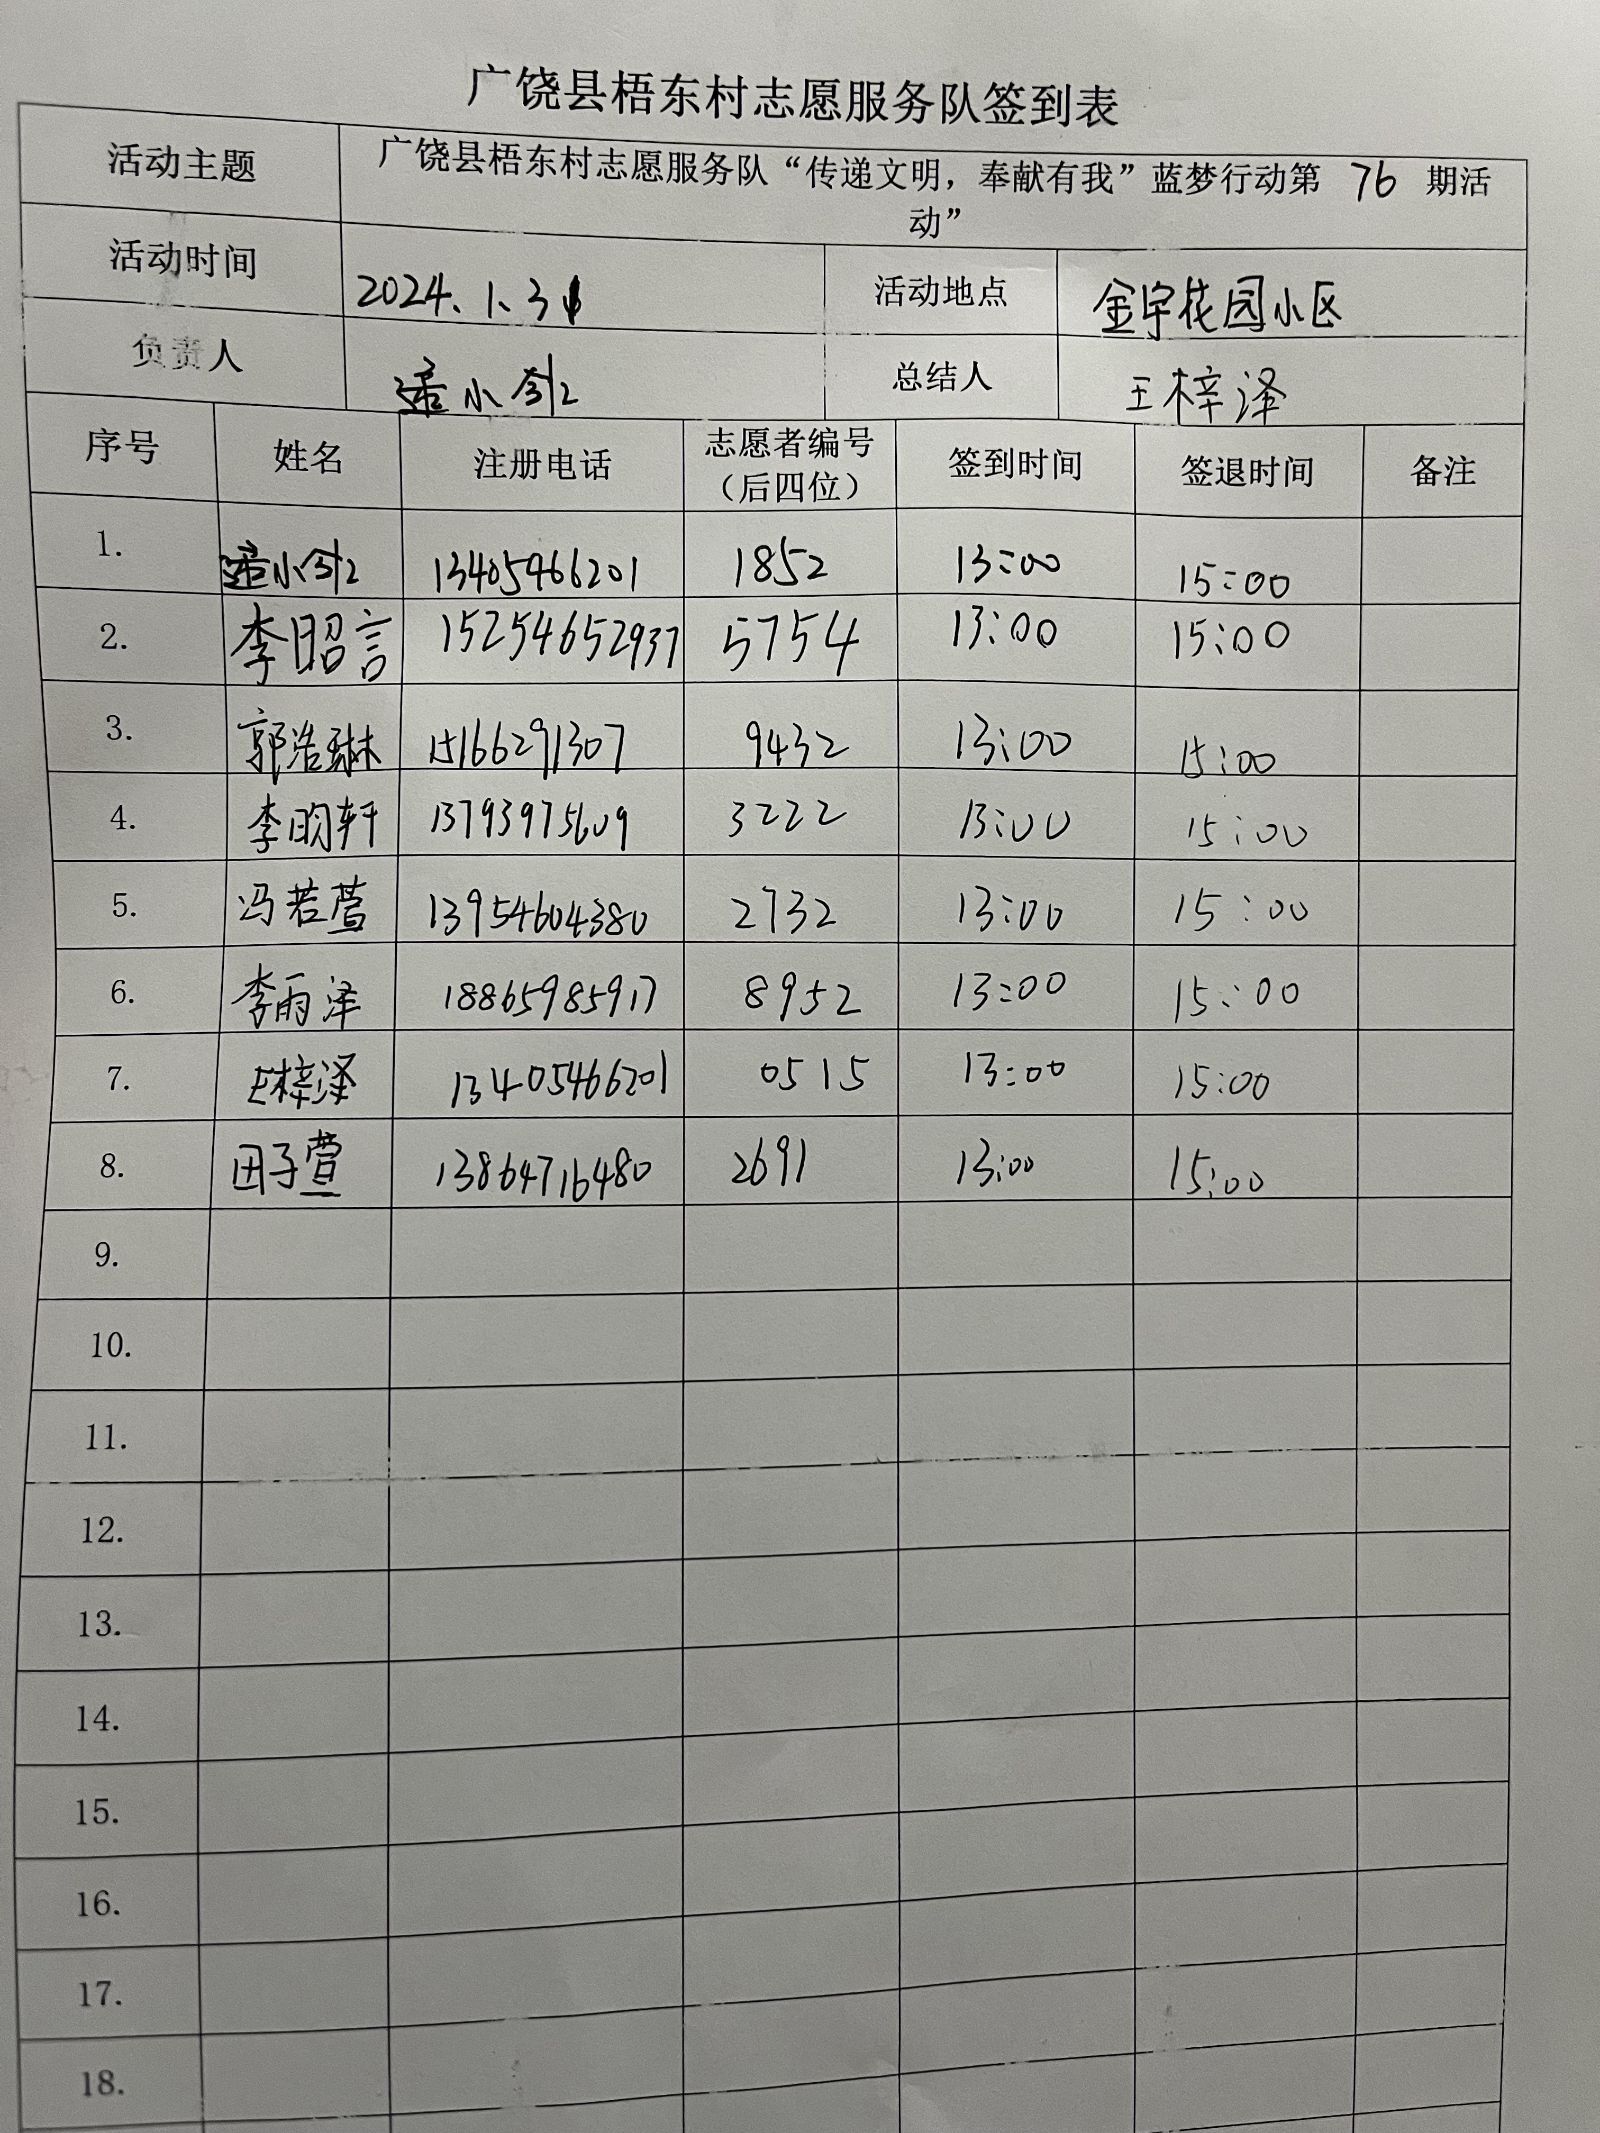 广饶县梧东村志愿服务队签到表
活动主题 广饶县梧东村志愿服务队“传递文明，奉献有我”蓝梦行动第 76 期活
动”
活动时间 2024.1.31 活动地点 金宇花园小区
负责人 小 总结人 王梓泽
序号 姓名 注册电话 志愿者编号 签到时间 签退时间 备注
（后四位）
1. 小 13405466201 1852 13:00 15:00
2. 李昭言 15254652937 5754 13:00 15:00
3. 郭浩琳 15166291307 9432 13:00 15:00
4. 李昀轩 13793975609 3222 13:00 15:00
5. 冯若萱 13954604380 2732 13:00 15:00
6. 李雨泽 18865985917 8952 13:00 15:00
7. 王梓泽 13405466201 0515 13:00 15:00
8. 田子萱 13864716480 2691 13:00 15:00
9.
10.
11.
12.
13.
14.
15.
16.
17.
18.